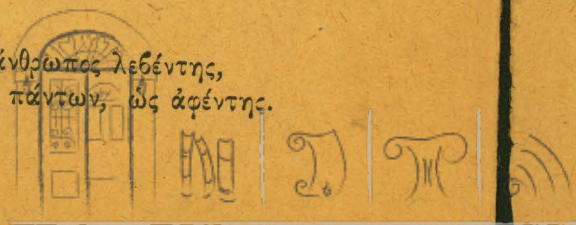 άνθρωπος λεβέντης,
πάντων, ὡς ἀφέντης.